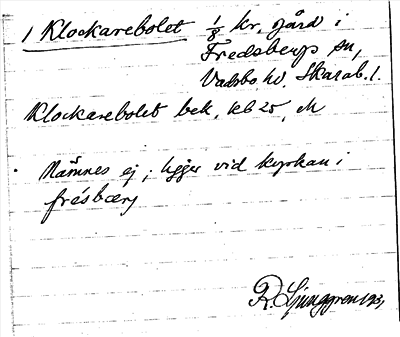 1 Klockarebolet 1/8 kr. gård i
Fredsbergs sn,
Vadsbo hd. Skarab. l.
Klockarebolet bek. kb 25, M
Nämnes ej; ligger vid kyrkan i
frésbærj
R. Ljunggren 1931